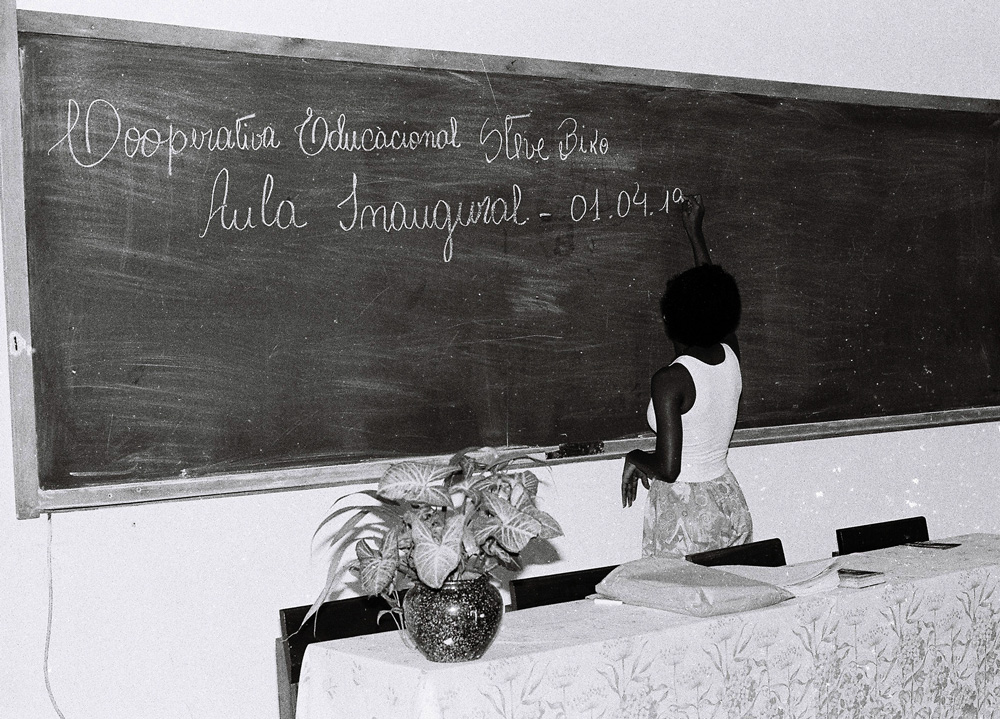 Cooperativa Educacional Steve Biko
Aula Inaugural - 01.04.19